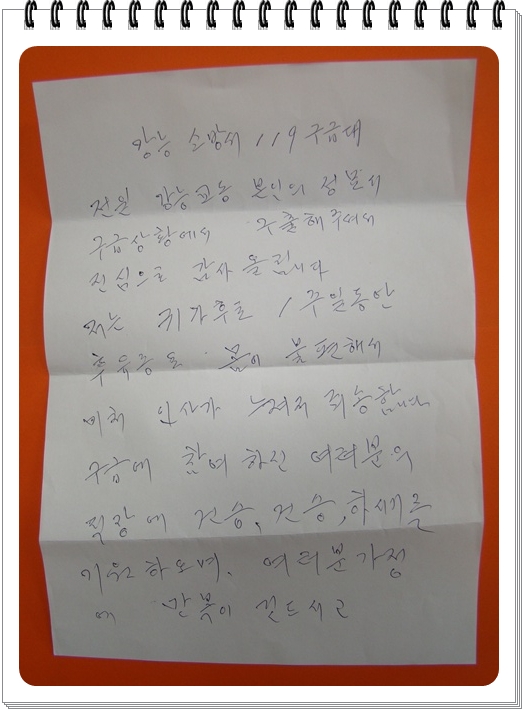 강능 소방서 119 구급대
전일 강능교동 본인의 정보서
구급상황에서 구출해주셔서
진심으로 감사 올립니다
저는 귀가후로 1주일동안
후유증으로 몸이 불편해서
미처 인사가 늦어저 죄송합니다
구급에 참여 하신 여러분의
직장에 건승, 건승, 하시기를
기원하오며. 여러분가정
에 만복이 깃드시고